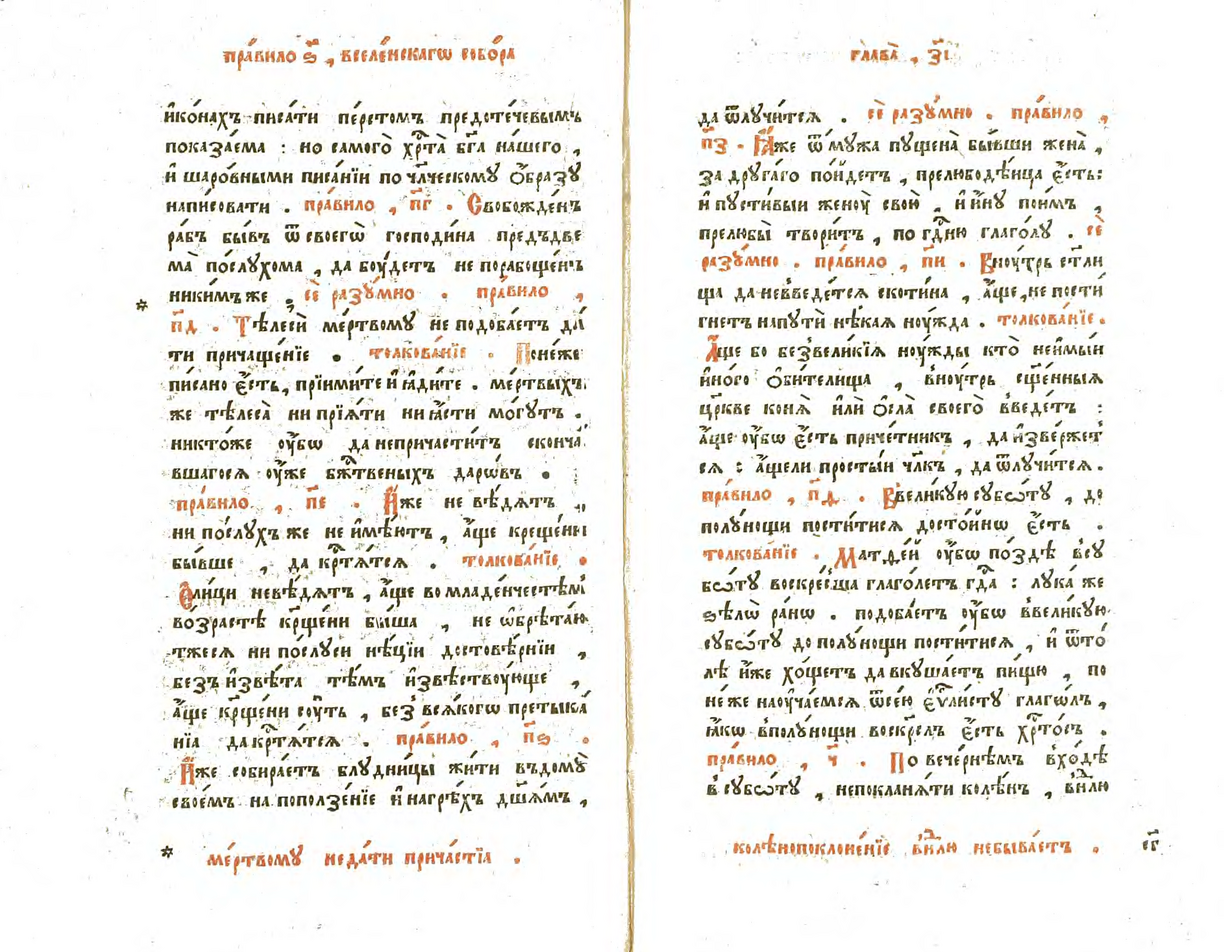 пра́вило ѕ҃ , вселе́нскагѡ собо́ра
и҆ко́нахъ писа́ти пе́рстомъ предоте́чевымъ
показа́ема : но самого̀ хр҇та̀ бг҃а на́шего ,
и҆ шаро́вными писа́нїи по чл҃ческому ѻ҆́бразу
написовати . пра́вило , п҃г . Свобожде́нъ
ра́бъ бы́въ ѿ своегѡ̀ господи́на предъдве
ма̀ по́слухома , да бꙋ́детъ не порабоще́нъ
ники́мъже . сѐ разꙋ́мно . пра́вило ,
п҃д . Тѣ́леси ме́ртвому не подоба́етъ да́
ти причаще́нїе . толкова́нїе . Поне́же
писано є҆́сть, прїими́те и҆ ꙗ҆ди́те . ме́ртвыхъ
же тѣлеса̀ ни прїѧ́ти ни ꙗ҆́сти мо́гутъ .
никто́же ᲂу҆́бѡ да непричасти́тъ сконча́
вшагосѧ ᲂу҆́же бж҇твеныхъ даро́въ .
пра́вило , п҃е . И҆̀же не вѣ́дѧтъ ,
ни по́слухъ же не и҆мѣ́ютъ , а҆́ще креще́ни
бы́вше , да кр҇тѧ́тсѧ . толкова́нїе .
Е҆ли́цы невѣ́дѧтъ , а҆́ще во младе́нчестѣмъ
во́зрастѣ кр҃ще́ни бы́ша , не ѡ҆брѣта́ю
тжесѧ ни по́слуси нѣ́цїи достовѣ́рнїи ,
безъ и҆звѣ́та тѣ́мъ и҆звѣствꙋ́юще ,
а҆́ще кр҃ще́ни сꙋ́ть , без̾ всѧ́когѡ претыка́
нїа да кр҇тѧ́тсѧ . пра́вило , п҃ѕ .
И҆̀же собира́етъ блудни́цы жи́ти въдомꙋ̀
свое́мъ на поползе́нїе и҆ нагрѣ́хъ дш҃а́мъ ,
* ме́ртвому неда́ти прича́стїа .
глава̀ , з҃і
да ѿлꙋчи́тсѧ . сѐ разꙋ́мно . пра́вило ,
п҃з . Ꙗ҆́же ѿ мꙋ́жа пꙋщена̀ бы́вши жена̀ ,
за дрꙋга́го по́йдетъ , прелюбодѣ́ица є҆́сть:
и҆ пꙋсти́выи женᲂу̀ свою̀ , и҆ и҆́нꙋ пои́мъ ,
прелюбы̀ твори́тъ , по гд҇ню глаго́лꙋ . сѐ
разꙋ́мно . пра́вило , п҃и . Внᲂу́трь ст҃ли
ща да невведе́тсѧ скоти́на , а҆́ще, не пости
гнетъ напꙋтѝ нѣ́каѧ нᲂу́жда . толкова́нїе .
А҆́ще бо безвели́кїѧ нᲂу́жды кто̀ неимы́и
и҆но́го ѻ҆би́телища , внᲂу́трь сщ҃е́нныѧ
цр҃кве конѧ̀ и҆лѝ ѻ҆сла̀ своего̀ введе́тъ :
а҆́ще ᲂу҆́бѡ є҆́сть приче́тникъ , да и҆зве́ржет
сѧ : а҆́щели просты́и чл҃къ , да ѿлꙋчи́тсѧ .
пра́вило , п҃ѳ . Ввели́кꙋю сꙋбѡ́тꙋ , до
полꙋ́нощи пости́тисѧ досто́йнѡ є҆́сть .
толкова́нїе . Матѳе́й ᲂу҆́бѡ по́здѣ всꙋ
бѡ́тꙋ воскре́сша глаго́летъ гд҇а : лꙋка́ же
ѕѣлѡ̀ ра́нѡ . подоба́етъ ᲂу҆́бѡ ввели́кꙋю
сꙋбѡ́тꙋ до полꙋ́нощи пости́тисѧ , и҆ ѿто́
лѣ и҆́же хо́щетъ да вкꙋша́етъ пи́щю , по
не́же наᲂуча́емсѧ ѿсею̀ є҆ѵ҃ли́стꙋ глаго́лъ ,
ꙗ҆́кѡ вполꙋ́нощи воскре́слъ є҆́сть хр҇то́съ .
пра́вило , ч҃ . По вече́рнѣмъ вхо́дѣ
в сꙋбѡ́тꙋ , непоклана́ти колѣ́нъ , в нл҇ю
колѣнопоклоне́нїе в нл҇ю небыва́етъ .